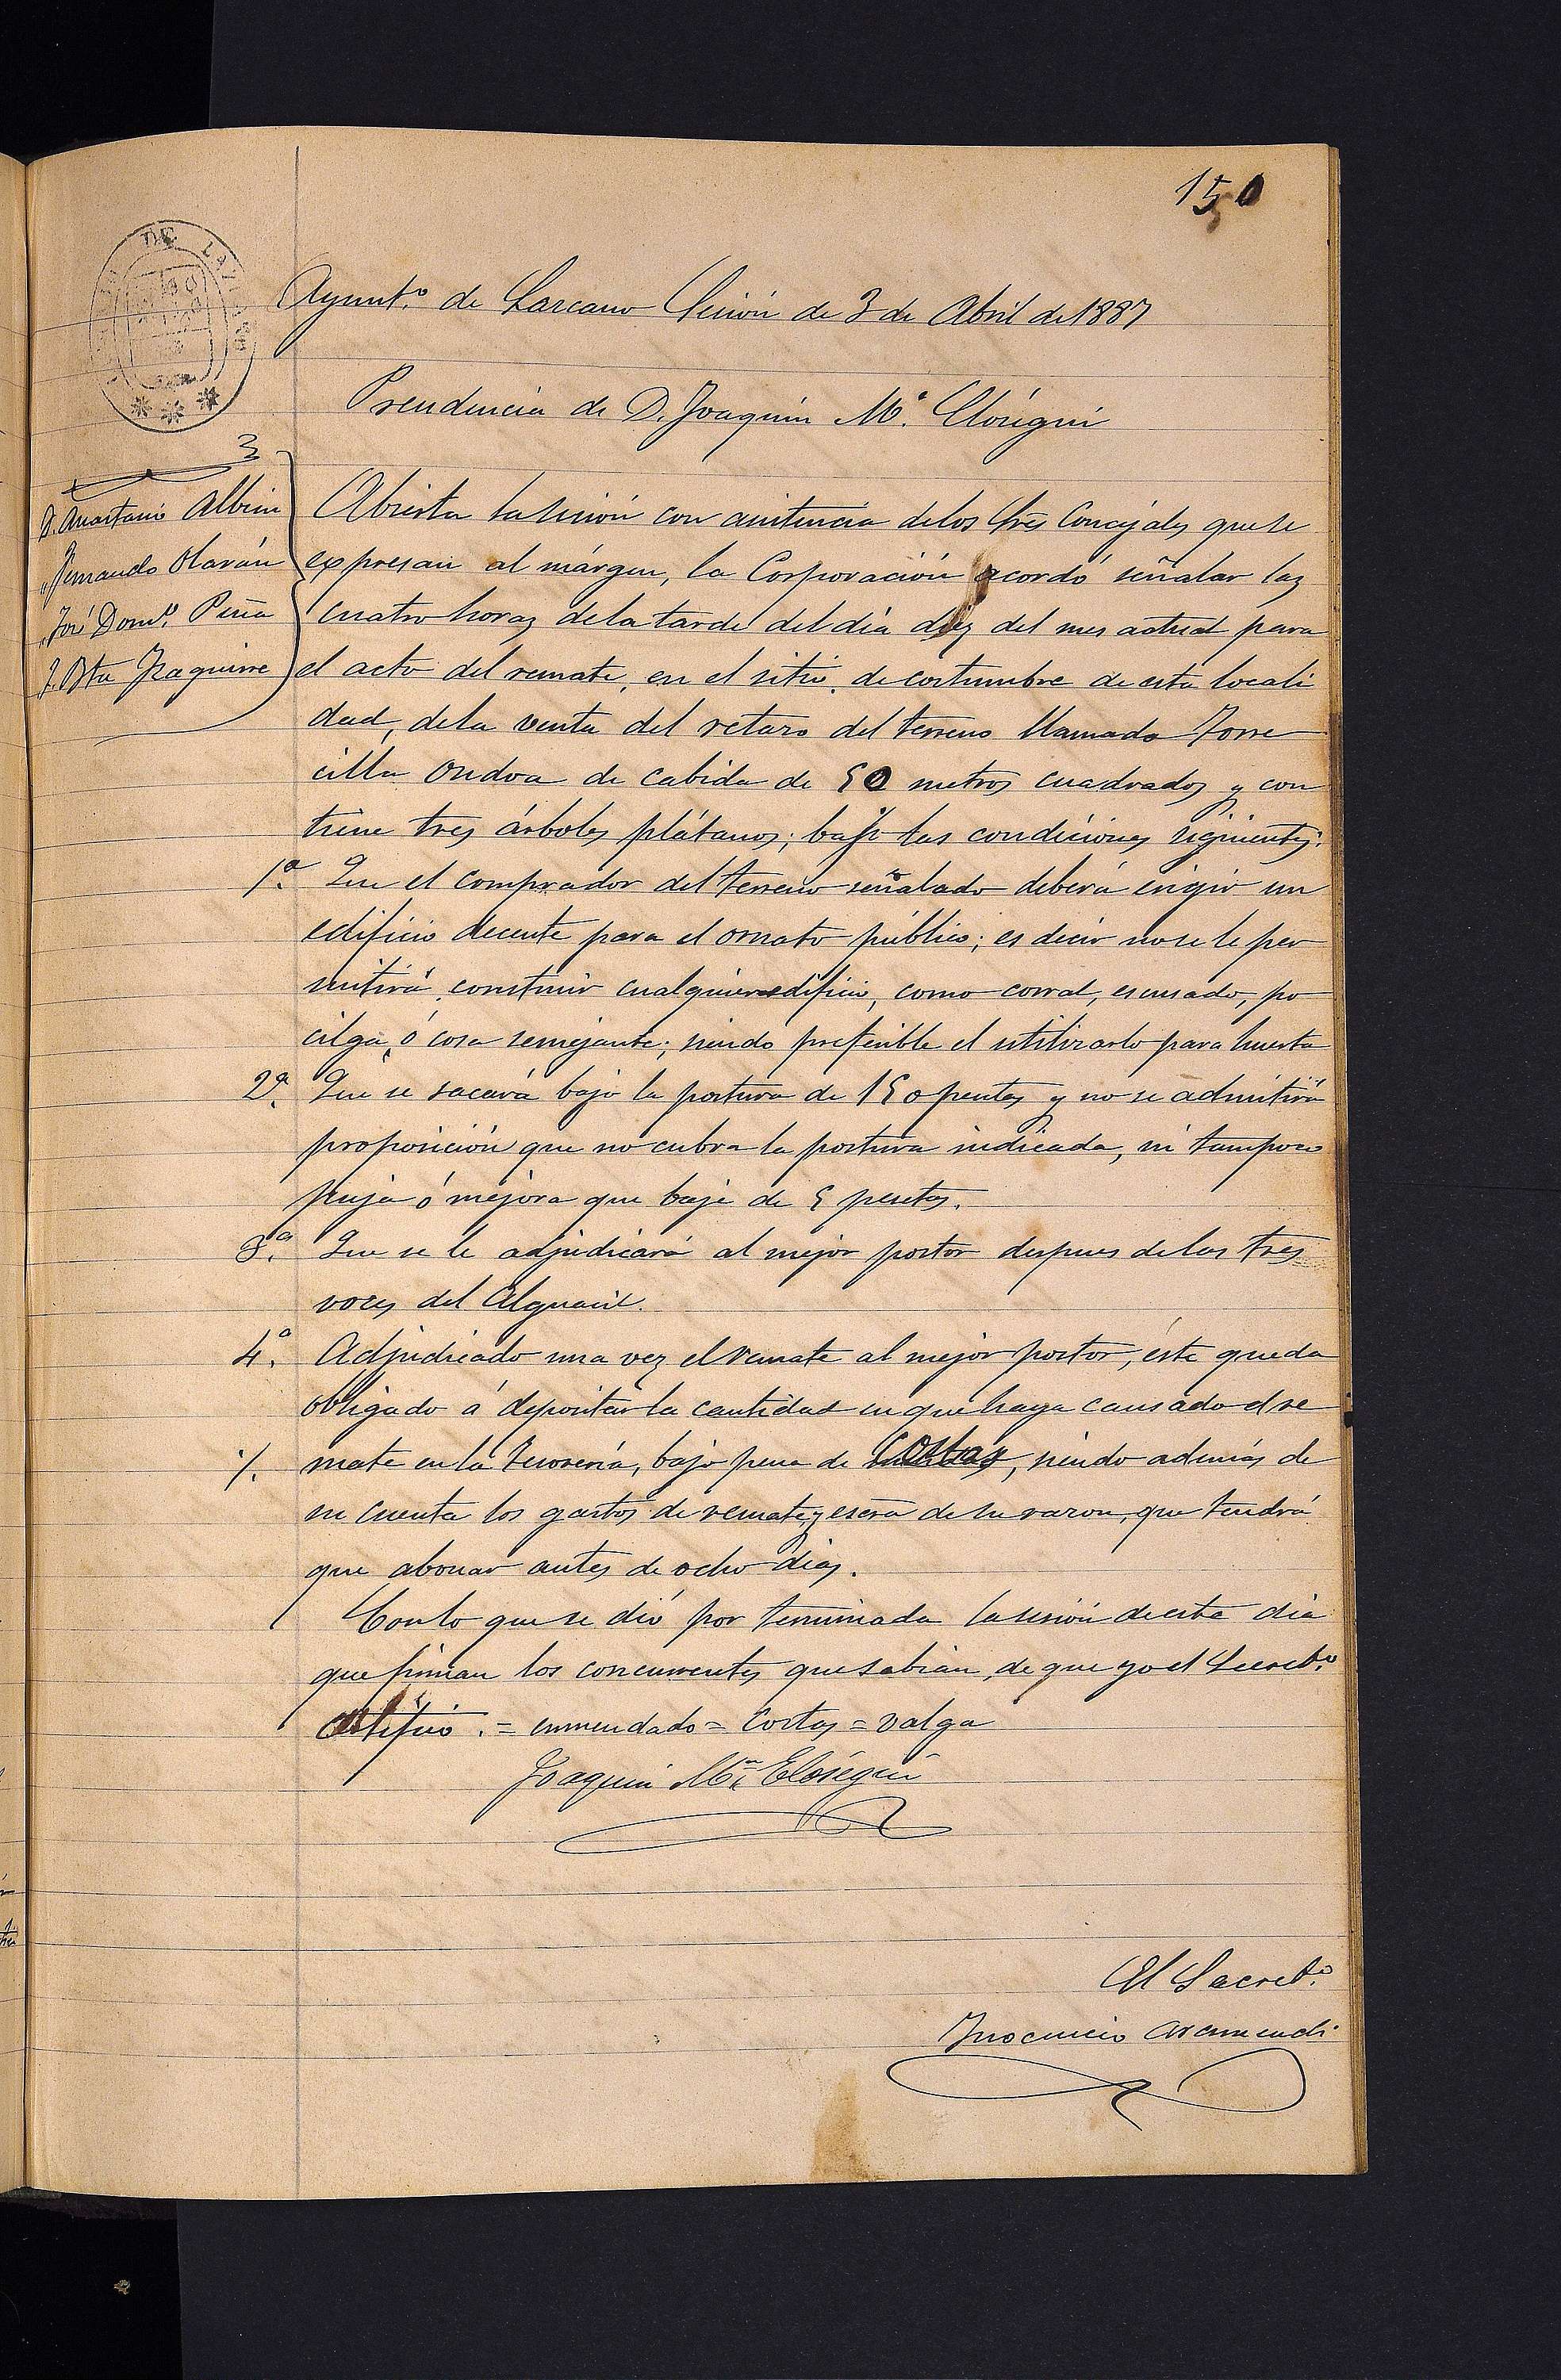 150
Ayunt.º de Lazcano Sesión de 3 de Abril de 1887
Presidencia de D. Joaquin M.ª Elósegui
3
D. Anastasio Albisu
„ Fernando Olarán
„ José Dom.º Peña
J. Bta Izaguirre
Abierta la sesión con asistencia de los Sres Concejales que se
expresan al márgen, la Corporación acordó señalar las
cuatro horas de la tarde del día diez del mes actual para
el acto del remate, en el sitio de costumbre de esta locali
dad, de la venta del retazo del terreno llamado Torre
cilla ondoa de cabida de 50 metros cuadrados y con
tiene tres árboles plátanos; bajo las condiciones siguientes:
1.ª Que el comprador del terreno señalado deberá erigir un
edificio decente para el ornato público; es decir no se le per
mitirá construir cualquier edificio, como corral, escusado, po
cilga, ó cosa semejante; siendo preferible el utilizarlo para huerta
2.ª Que se sacará bajo la postura de 150 pesetas y no se admitirá
proposición que no cubra la postura indicada, ni tampoco
puja ó mejora que baje de 5 pesetas.
3.ª Que se le adjudicará al mejor postor despues de las tres
voces del Alguacil.
4.ª Adjudicado una vez el remate al mejor postor, éste queda
obligado á depositar la cantidad en que haya causado el re
mate en la Tesorería, bajo pena de Costas, siendo además de
su cuenta los gastos de remate, y escra de su razon, que tendrá
que abonar antes de ocho dias.
Con lo que se dió por terminada la sesión de este dia
que firman los concurrentes que sabian, de que yo el Secret.º
certifico. = enmendado = Costas = valga
Joaquin M.ª Elósegui
El Secret.º
Inocencio Aramendi